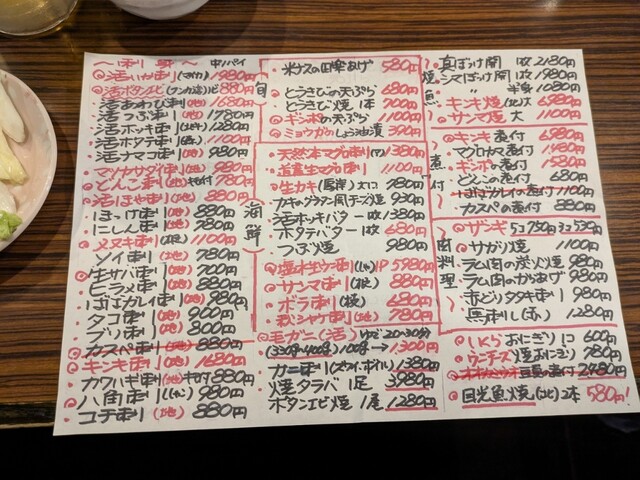 〜刺身〜 中パイ
活いか刺(マイカ)1980円
活ボタンエビ 880円
活あわび刺(地)1680円
活つぶ刺 1780円
活ホッキ刺 1280円
活ホタテ刺 1100円
活ナマコ刺(地)980円
マツカサダイ刺(地)980円
どんこ刺(地)肝付780円
活ほや刺(地)880円
ほっけ刺(地)880円
にしん刺(地)780円
メヌキ刺 1100円
ソイ刺(地)780円
生サバ刺(地)700円
ヒラメ刺(地)880円
ばばカレイ刺(地)980円
タコ刺(地)900円
ブリ刺(地)800円
カスベ刺(地)880円
キンキ刺(地)1680円
カワハギ刺(地)キモ付880円
八角刺 980円
コチ刺(地)880円
旬
米ナスの田楽あげ 580円
とうきびの天ぷら 680円
とうきび焼 1本 700円
ギンポの天ぷら 1100円
ミョウガのしょう油漬 390円
海鮮
天然本マグロ刺 1380円
道産生マグロ刺 1100円
生カキ(厚岸)大1コ 780円
カキのグラタン風チーズ焼 930円
活ホッキバター 1枚 1380円
ホタテバター 1枚 680円
つぶ焼 980円
塩水生ウニ刺 1P 5980円
サンマ刺(根)880円
ボラ刺 680円
秋シャケ刺(地)780円
毛ガニ(活)ゆで20〜30分
(330g〜400g)100g→1300円
カニ刺(ズワイ、ボイル)1380円
焼タラバ 1足 3980円
ボタンエビ焼 1尾 1280円
焼魚
真ほっけ開 1枚 2180円
シマほっけ開 1枚 1980円
半身 1080円
キンキ焼 6980円
サンマ焼 大 1100円
煮付
キンキ煮付 6980円
マグロカマ煮付 1980円
ギンポの煮付 1580円
どんこの煮付 680円
ばばカレイの煮付 1100円
カスベの煮付 880円
肉料理
ザンギ 5コ750円 3コ530円
サガリ焼 1100円
ラム肉の炭火焼 980円
ラム肉のからあげ 980円
赤どりタタキ刺 980円
馬刺し(赤)1280円
いくらおにぎり 1コ 600円
ウニチーズ焼おにぎり 780円
の煮付 2480円
目光魚焼 2本 580円!